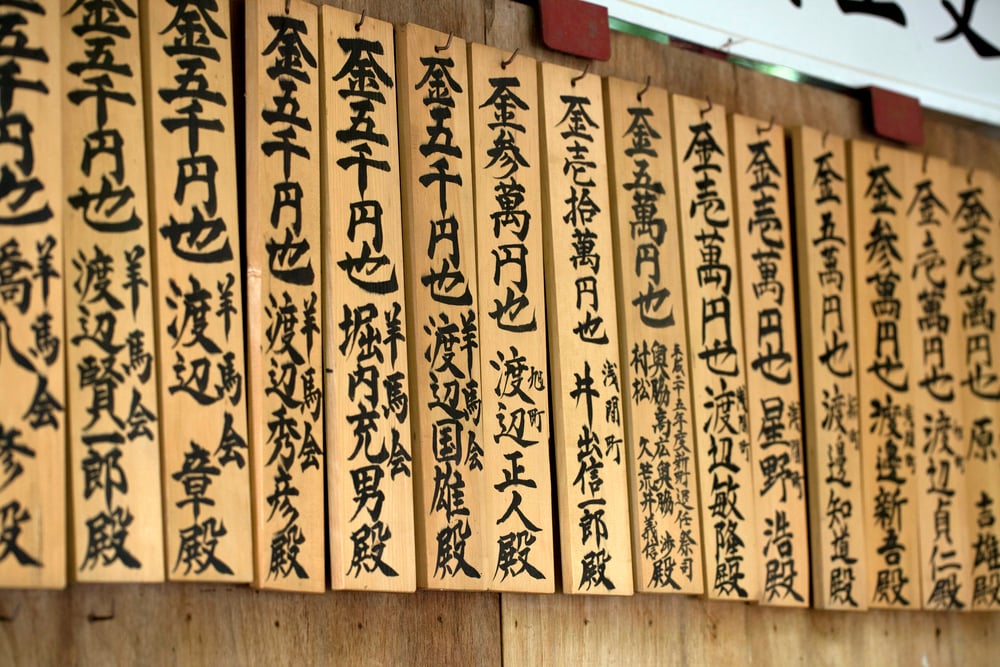 金壱萬円也
原 吉雄殿
金壱萬円也
渡辺貞仁殿
金参萬円也
渡邉新吾殿
金五萬円也
渡邊知道殿
金壱萬円也
浅間町
星野 浩殿
金壱萬円也
浅間町
渡辺敏隆殿
金五萬円也
年度新町退任祭司
奥脇萬広 奥脇 渉殿
村松 久 荒井義信
金壱拾萬円也
浅間町
井出信一郎殿
金参萬円也
旭町
渡辺正人殿
金五千円也
羊馬会
渡辺国雄殿
金五千円也
羊馬会
堀内充男殿
金五千円也
羊馬会
渡辺秀彦殿
金五千円也
羊馬会
渡辺 章殿
金五千円也
羊馬会
渡辺賢一郎殿
五千円也
羊馬会
殿